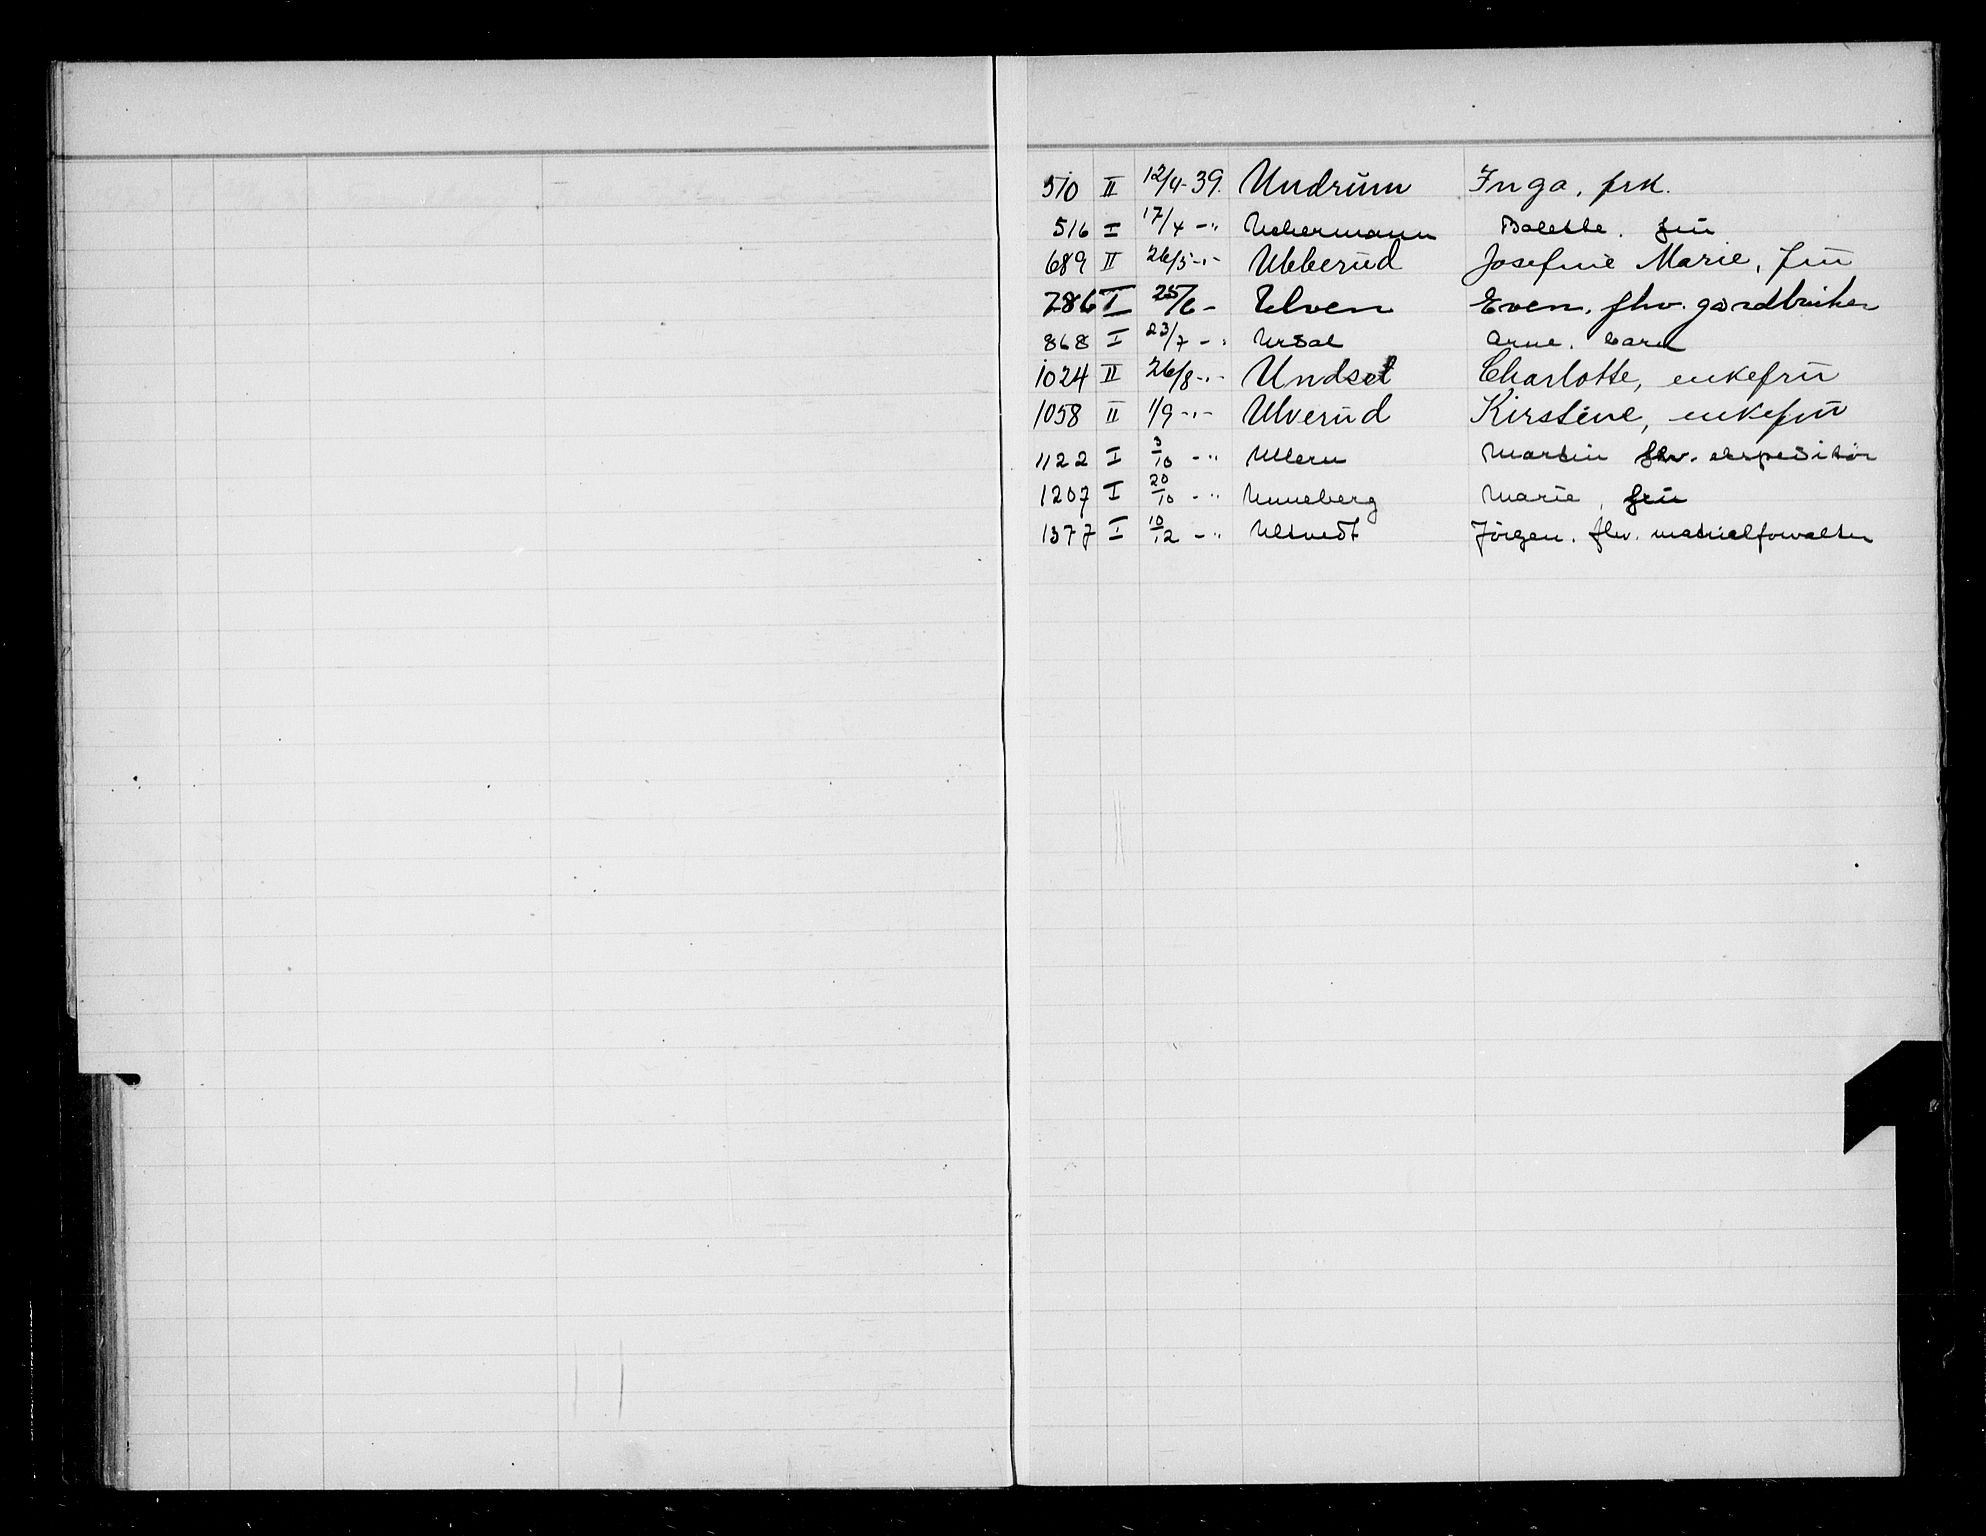 510 II 12/4-39. Undrum Inga, frk.
516 I 17/4 -" Uchermann Bolette. frü
689 II 26/5-"- Ubberud Josefine Marie, frü
786 I 25/6 - Ulven Even. fhv. gårdbruker
868 I 23/7 -" Ursal Arne. barn
1024 II 26/8-"- Undset Charlotte, enkefrü
1058 II 1/9-"- Ulverud Kirstine, enkefrü
1122 I 3/10 -" Ullern Martin fhv. ekspeditör
1207 I 20/10 -" Unneberg Marie, frü
1377 I 10/12 -" Ultvedt Jörgen. fhv. matrialforvalter